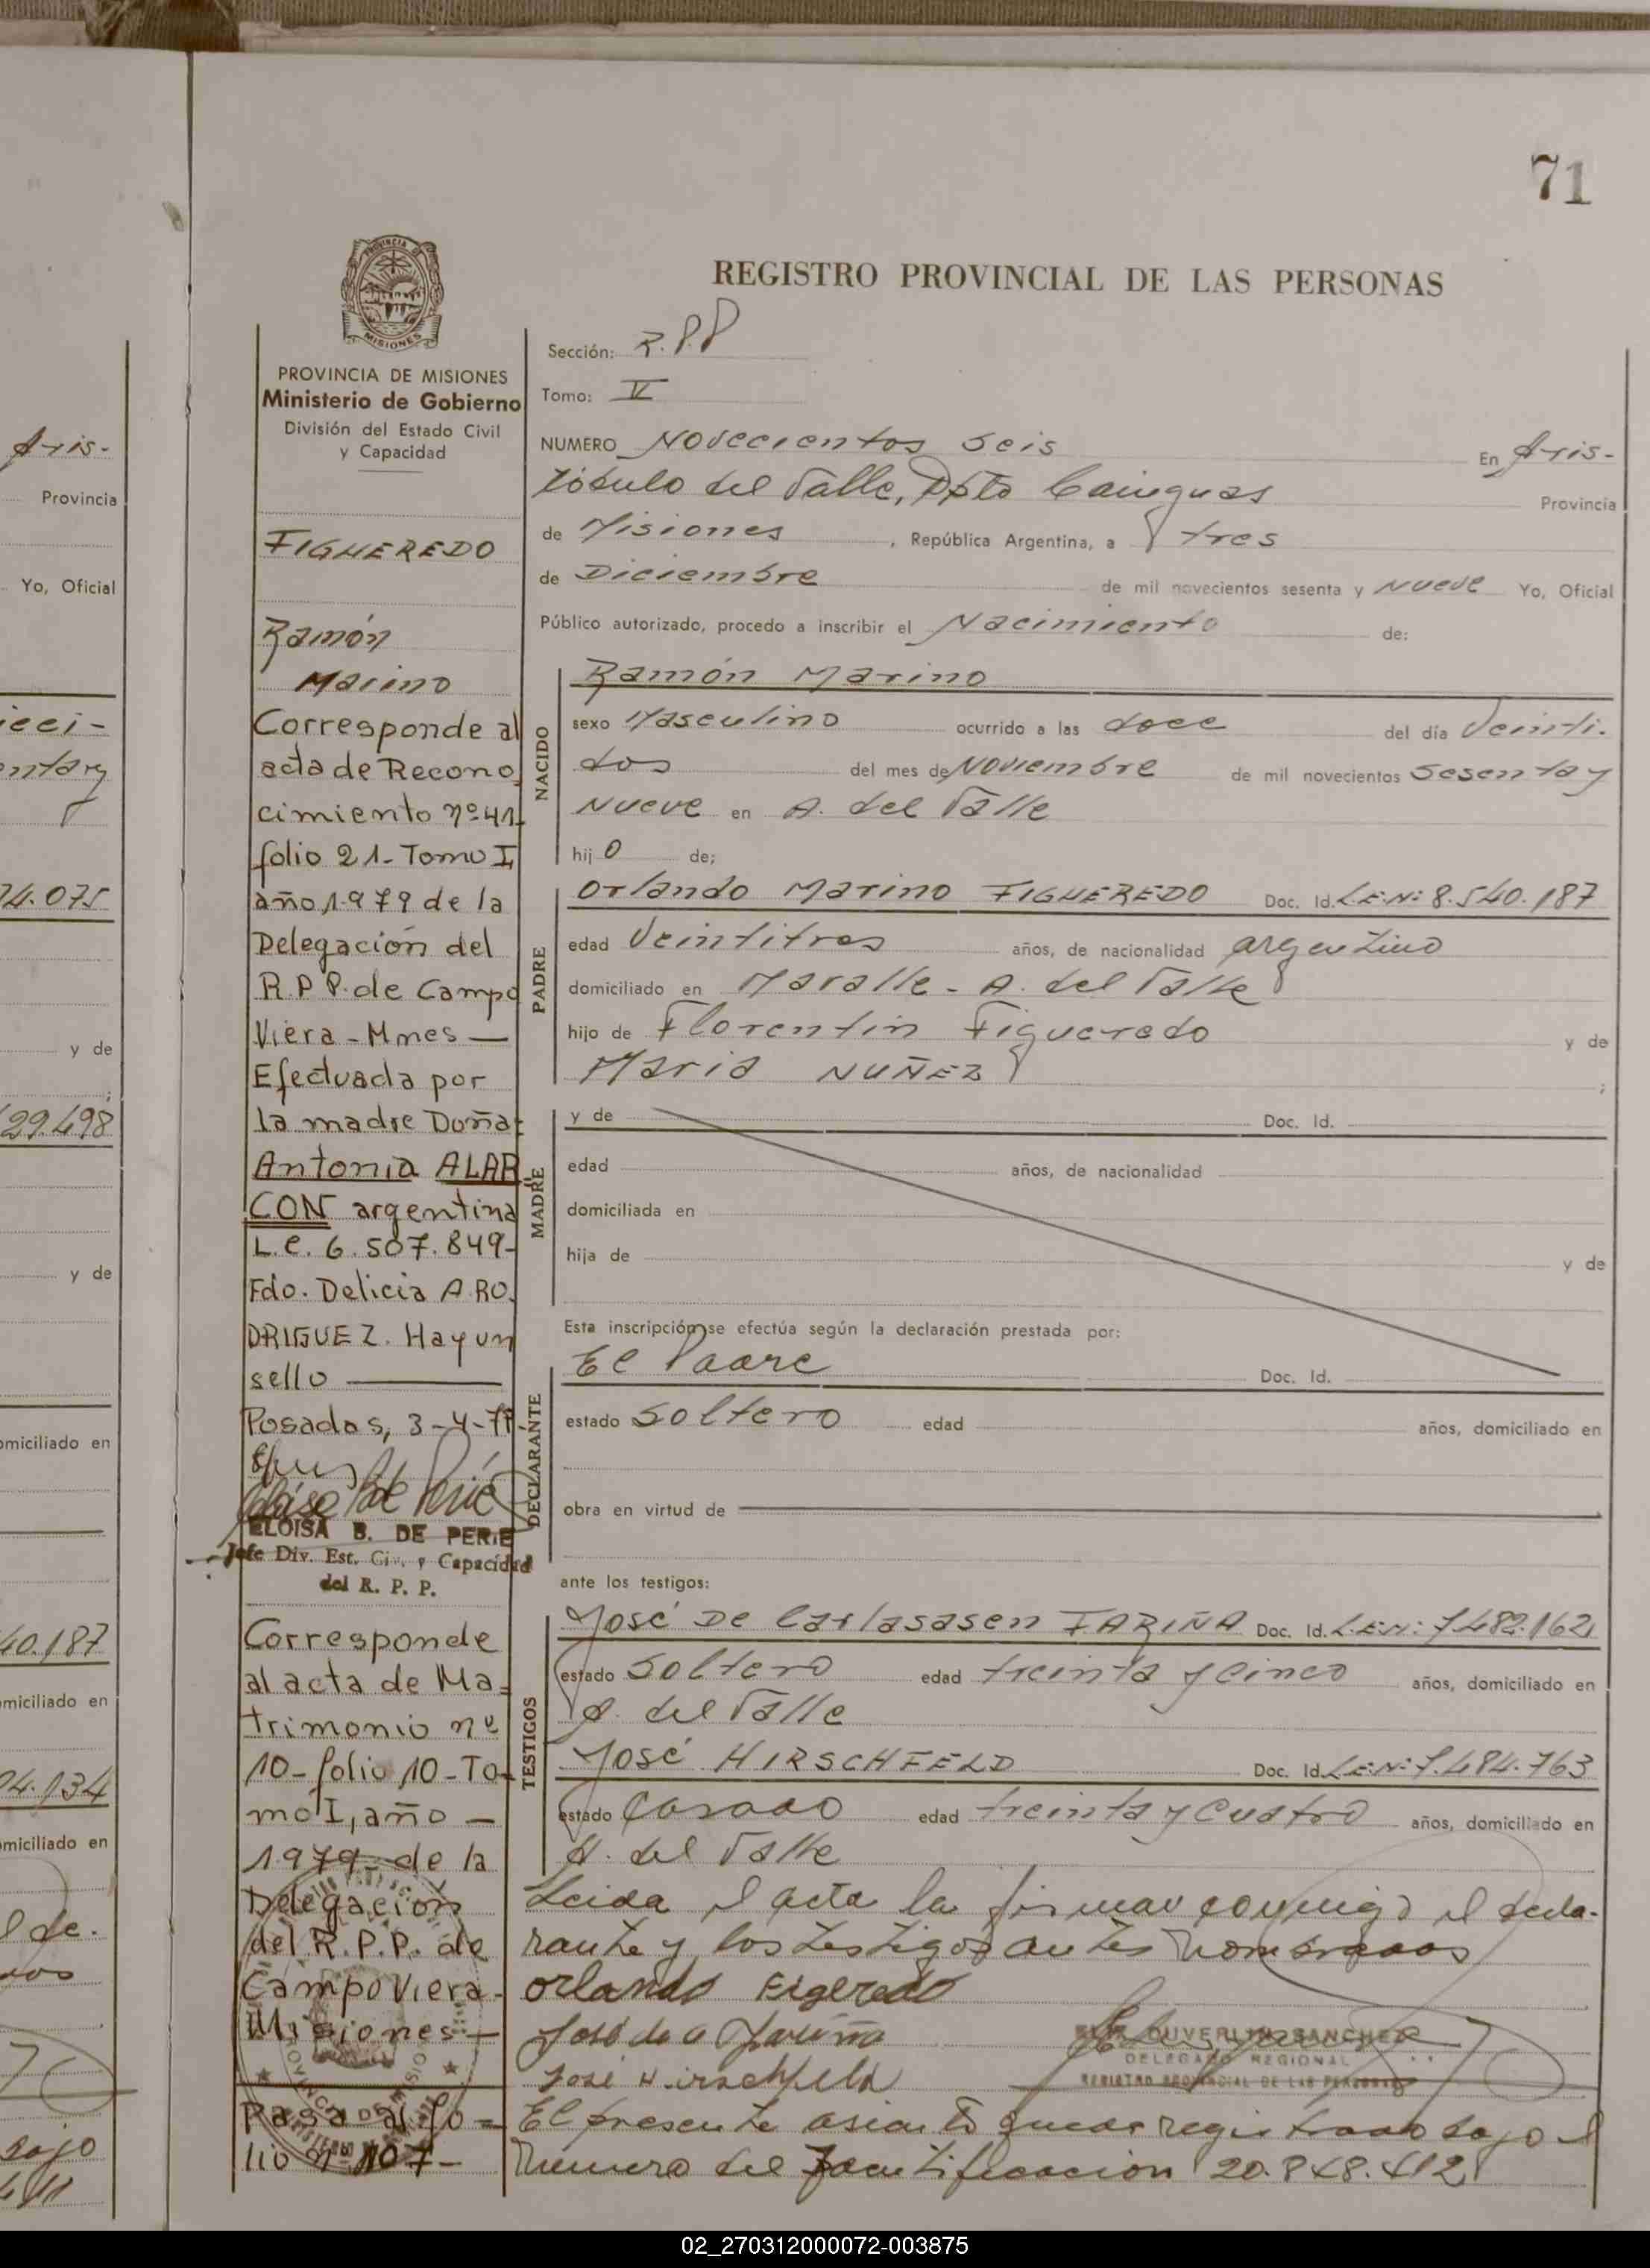 71
REGISTRO PROVINCIAL DE LAS PERSONAS
PROVINCIA DE MISIONES
Ministerio de Gobierno
División del Estado Civil
y Capacidad
FIGUEREDO
Ramón
Marino
Corresponde al
acta de Recono
cimiento nº 41
folio 21- Tomo I,
año 1979 de la
Delegación del
R.P.P. de Campo
Viera - Mnes —
Efectuada por
la madre Doña:
Antonia ALAR
CON argentina
L.C. 6.507.849-
Fdo. Delicia A. RO.
DRIGUEZ. Hay un
sello —
Posadas, 3-4-79.
ELOISA B. DE PERIE
Jefe Div. Est. Civ. y Capacidad
del R. P. P.
Corresponde
al acta de Ma=
trimonio nº
10- folio 10- To-
mo I, año —
1979- de la
Delegación
del R.P.P. de
Campo Viera-
Misiones —
Pasa al fo=
lio nº 107-
Sección: R.P.P
Tomo: V
NUMERO Novecientos seis En Aris-
tóbulo del Valle, Dpto Cainguas Provincia
de Misiones, República Argentina, a tres
de Diciembre de mil novecientos sesenta y Nueve Yo, Oficial
Público autorizado, procedo a inscribir el Nacimiento de:
NACIDO
Ramón Marino
sexo Masculino ocurrido a las doce del día Veinti.
dos del mes de Noviembre de mil novecientos sesenta y
Nueve en A. del Valle
hijo de;
PADRE
Orlando Marino FIGUEREDO Doc. Id. L.E.Nº 8.540.187
edad Veintitres años, de nacionalidad argentino
domiciliado en Maralle - A. del Valle
hijo de Florentin Figueredo y de
Maria NUÑEZ ;
MADRE
y de Doc. Id.
edad años, de nacionalidad
domiciliada en
hija de y de
DECLARANTE
Esta inscripción se efectúa según la declaración prestada por:
El Padre Doc. Id.
estado Soltero edad años, domiciliado en
obra en virtud de
ante los testigos:
TESTIGOS
José De FARIÑA Doc. Id. L.E.Nº: 7.482.162
estado Soltero edad treinta y cinco años, domiciliado en
A. del Valle
José HIRSCHFELD Doc. Id. L.E.Nº 7.484.763
estado Casado edad treinta y Cuatro años, domiciliado en
A. del Valle
Leida el acta la firman conmigo el decla-
rante y los testigos antes nombrados
orlando Figeredo
José de Fariña
José Hirschfeld
DUVERLYN SANCHEZ
DELEGADO REGIONAL
REGISTRO PROVINCIAL DE LAS PERSONAS
El presente asiento queda registrado bajo el
Numero de Identificacion 20.848.412
Aris-
Provincia
Yo, Oficial
74.075
y de
29.498
y de
omiciliado en
40.187
omiciliado en
04.134
omiciliado en
bajo
02_270312000072-003875